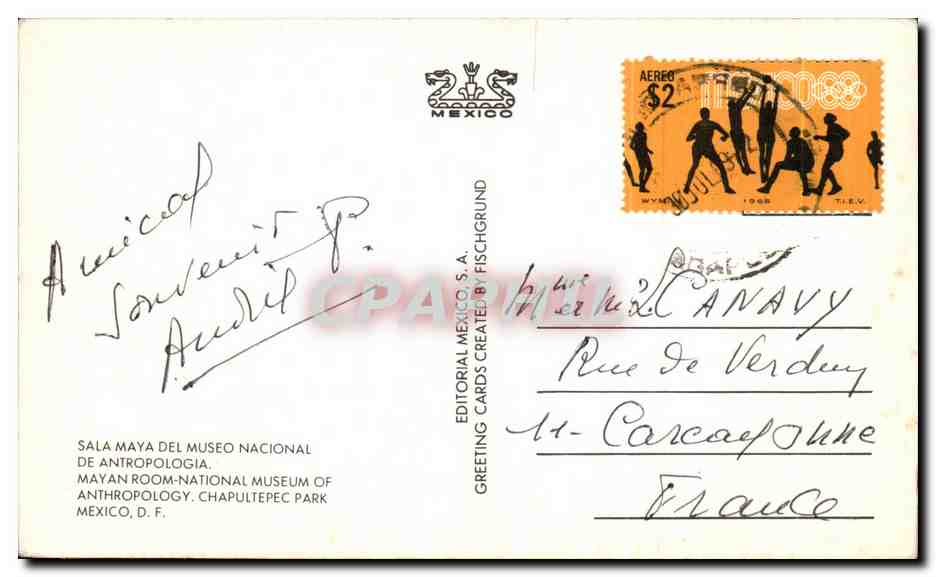 MEXICO
AEREO
$2
MEXICO68
1968
T.I.E.V.
Amical
Souvenir
André
CPARAMA
EDITORIAL MEXICO, S. A.
GREETING CARDS CREATED BY FISCHGRUND
CANAVY
Rue de Verdun
11- Carcassonne
France
SALA MAYA DEL MUSEO NACIONAL
DE ANTROPOLOGIA.
MAYAN ROOM-NATIONAL MUSEUM OF
ANTHROPOLOGY. CHAPULTEPEC PARK
MEXICO, D. F.